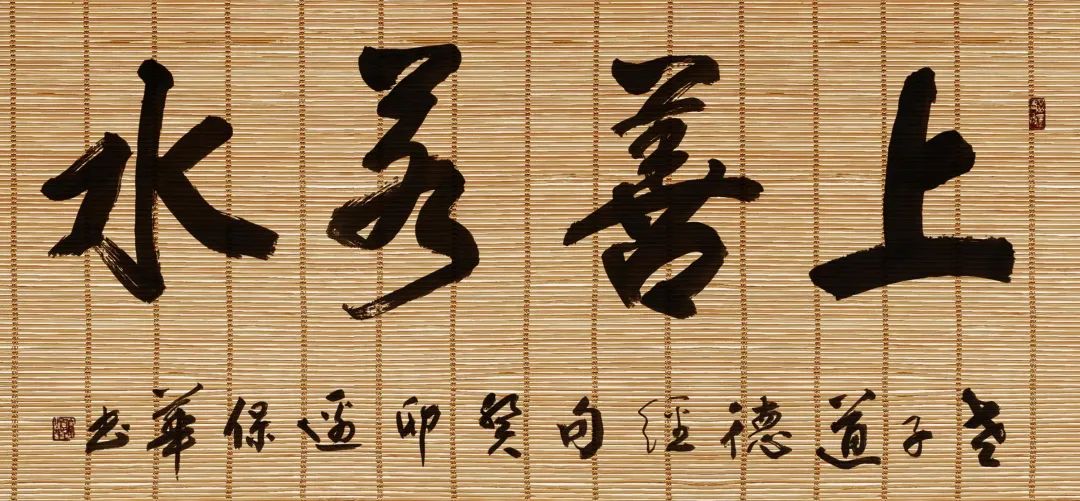 上善若水
老子道德經句癸卯保華书